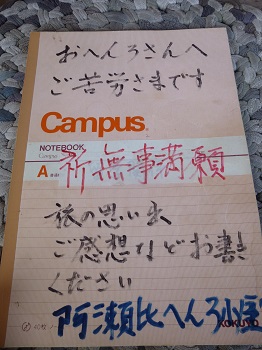 おへんろさんへ
ご苦労さまです
Campus
NOTEBOOK
Campus
A
祈無事満願
旅の思い出
ご感想などお書き
ください
阿瀬比へんろ小屋
KOKUYO